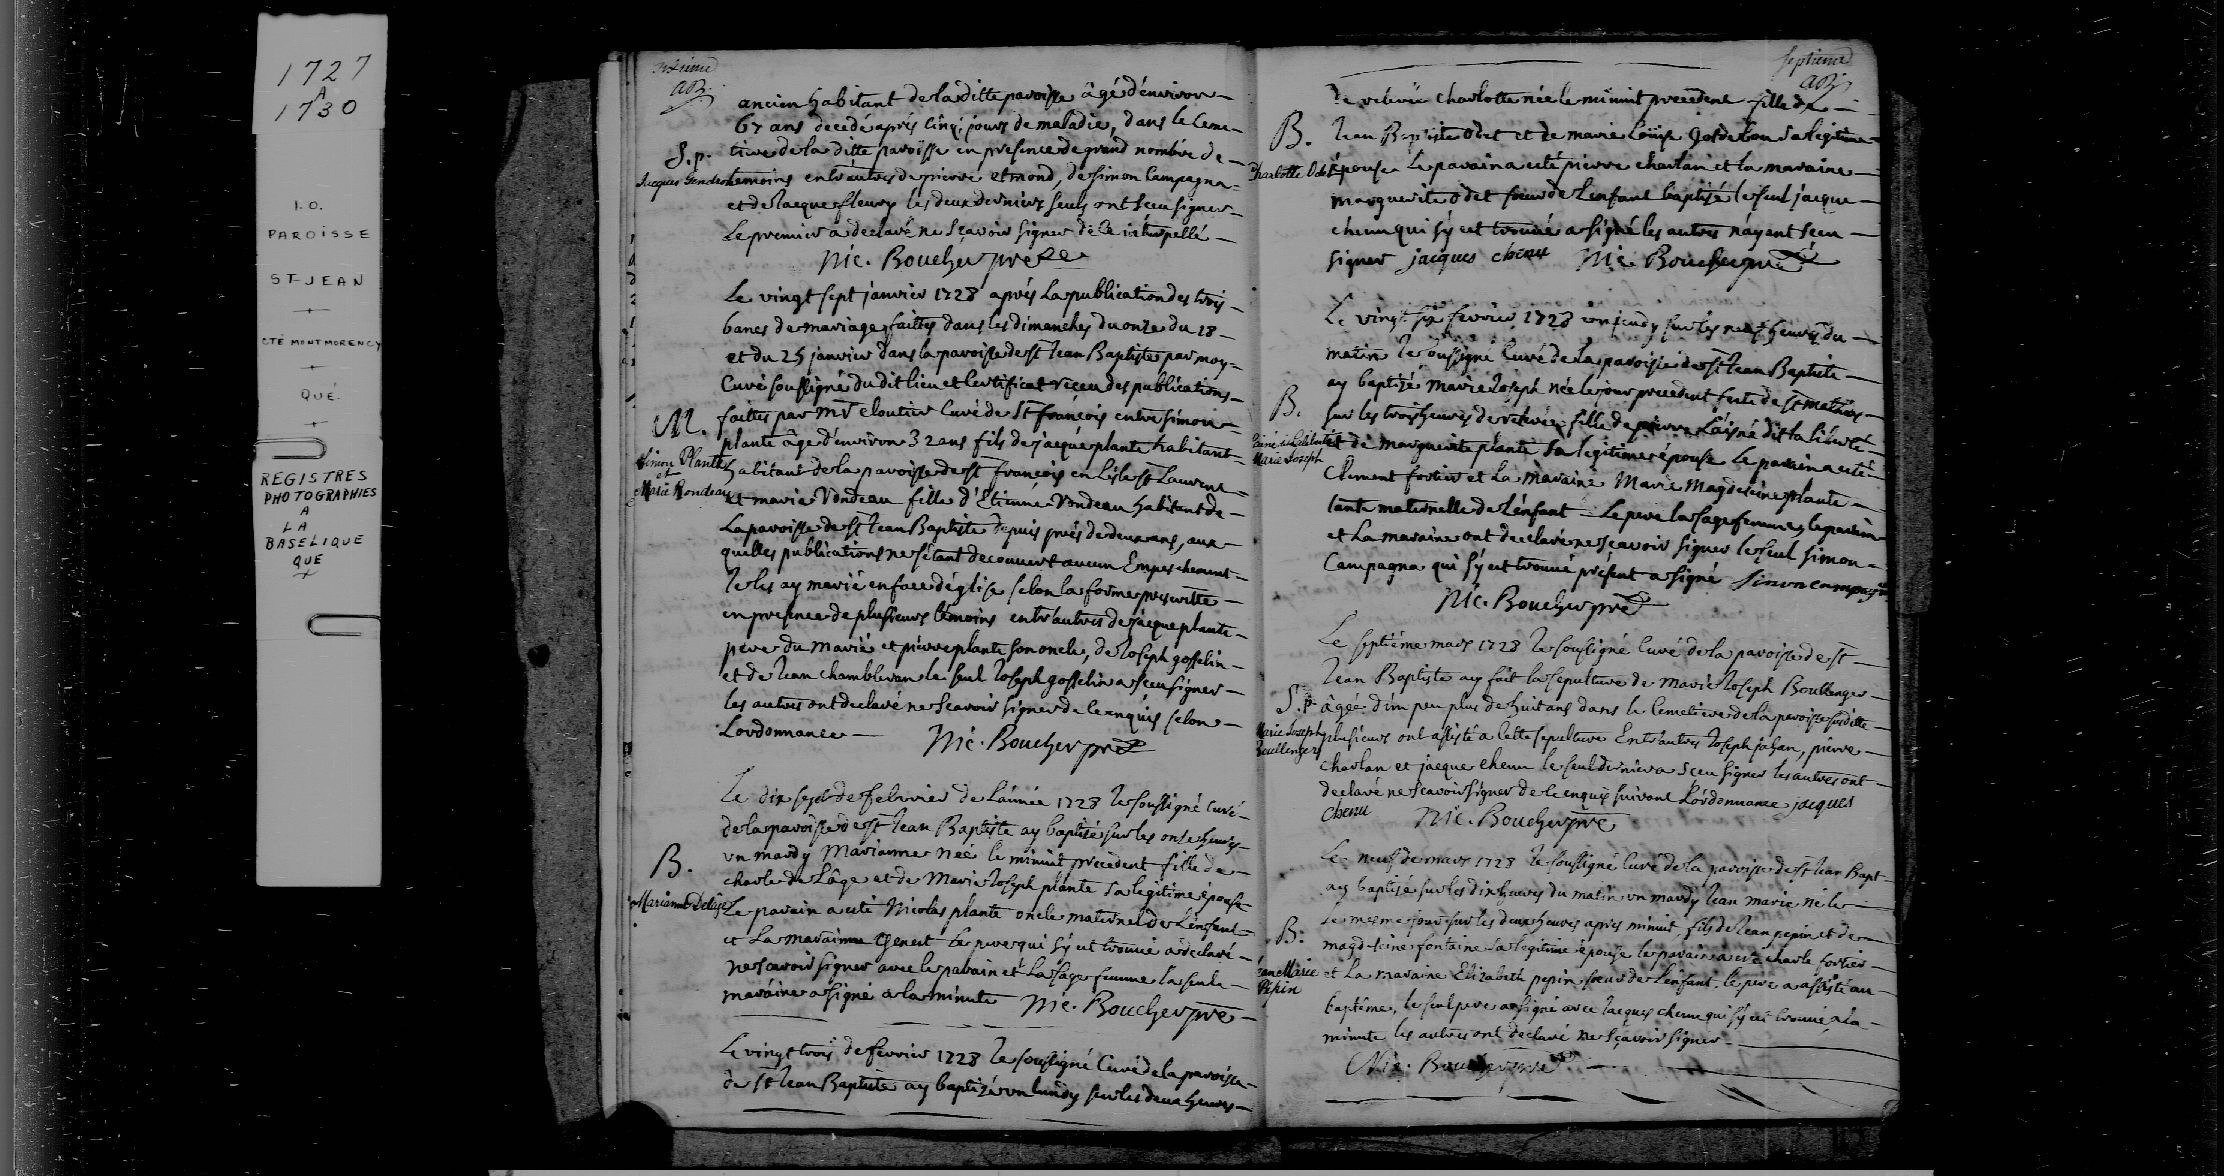 1727
A
1730
I.O.
PAROISSE
ST-JEAN
CTÉ MONTMORENCY
QUÉ.
REGISTRES
PHOTOGRAPHIES
A
LA
BASELIQUE
QUE
sixieme
ancien habitant de la ditte paroisse âgé d'environ
67 ans decedé aprés cinq jours de maladie, dans le Ceme-
tiere de la ditte paroisse en presence de grand nombre de
S.p.
Jacques Gendron
temoins entr'autres de pierre etmond, de simon Campagna
et de Jacque fleury les deux derniers seuls ont sceu signer
Le premier a declaré ne sçavoir signer de ce interpellé
Nic. Boucher pretre
Le vingt sept janvier 1728 aprés La publication des trois
bancs de mariage faittes dans les dimanches du onze du 18
et du 25 janvier dans la paroisse de St Jean Baptiste par moy
Curé soussigné du dit lieu et Certificat receu des publications
M.
Simon Plante
et
Marie Rondeau
faittes par mr cloutier Curé de St françois entre simon
plante âgé d'environ 32 ans fils de jacque plante habitant
habitant de la paroisse de St françois en L'isle St Laurent
et marie Rondeau fille d'Etienne Rondeau habitant de
La paroisse de St Jean Baptiste depuis prés de deux ans, aux
quelles publications ne s'étant decouvert aucun Empeschement
Je les ay marié en face d'église selon la forme prescritte
en presence de plusieurs témoins entr'autres de jacque plante
pere du marié et pierre plante son oncle, de Joseph gosselin
et de Jean chambleran le seul Joseph gosselin a sceu signer
les autres ont declaré ne sçavoir signer de ce enquis selon
L'ordonnance Nic. Boucher pre
Le dix sept de febvrier de L'année 1728 Je soussigné Curé
de la paroisse de St Jean Baptiste ay baptisé sur les onze heures
B.
Marianne Delage
un mardy Marianne née le minuit precedent fille de
charle de Lâge et de Marie Joseph plante sa legitime épouse
Le parain a eté Nicolas plante oncle maternel de L'enfant
et La maraine Genest Le pere qui s'y est trouvé a declaré
ne sçavoir signer avec le parain et La sage femme La seule
maraine a signé a la minute Nic. Boucher pre
Le vingt trois de fevrier 1728 Je soussigné Curé de la paroisse
de St Jean Baptiste ay baptizé un lundy sur les deux heures
septieme
de relevée charlotte née le minuit precedent fille de
B.
Charlotte Odet
Jean Baptiste Odet et de marie Loüise sa legitime
épouse Le parain a eté pierre charlan et la maraine
marguerite Odet soeur de L'enfant baptizé le seul jacque
chenu qui s'y est trouvé a signé les autres n'ayant sceu
signer jacques chenu Nic. Boucher pre
Le vingt six fevrier 1728 un jeudy sur les neuf heures du
matin Je soussigné Curé de la paroisse de St Jean Baptiste
B.
Marie Joseph
ay baptizé marie Joseph née le jour precedent feste de St mathias
sur les trois heures de relevée fille de pierre Laisné dit la liberté
et de marguerite plante sa legitime épouse Le parain a eté
Clement fortier et La maraine Marie magdeleine plante
tante maternelle de L'enfant Le pere la sage femme, le parain
et La maraine ont declaré ne sçavoir signer le seul simon
Campagna qui s'y est trouvé présent a signé simon campagna
Nic. Boucher pre
Le septiéme mars 1728 Je soussigné Curé de la paroisse de St
Jean Baptiste ay fait la sepulture de marie Joseph Boullenger
S.p.
Marie Joseph
Boullenger
âgée d'un peu plus de huit ans dans le Cemetiere de la paroisse susditte
plusieurs ont assisté a Cette sepulture Entr'autres Joseph jahan, pierre
charlan et jacque chenu le seul dernier a sceu signer les autres ont
declaré ne sçavoir signer de ce enquis suivant L'ordonnance jacques
chenu Nic. Boucher pre
Le neuf de mars 1728 Je soussigné Curé de la paroisse de St Jean Bapt
ay baptizé sur les dix heures du matin un mardy Jean marie né le
B.
Jean Marie
Pepin
mesme jour sur les deux heures aprés minuit, fils de Jean pepin et de
magdeleine fontaine sa legitime épouse le parain a eté charle fortier
et La maraine Elizabeth pepin soeur de L'enfant, le pere a assisté au
baptême, le seul pere a signé avec Jacques chenu qui s'y est trouvé a la
minute les autres ont declaré ne sçavoir signer
Nic. Boucher pre